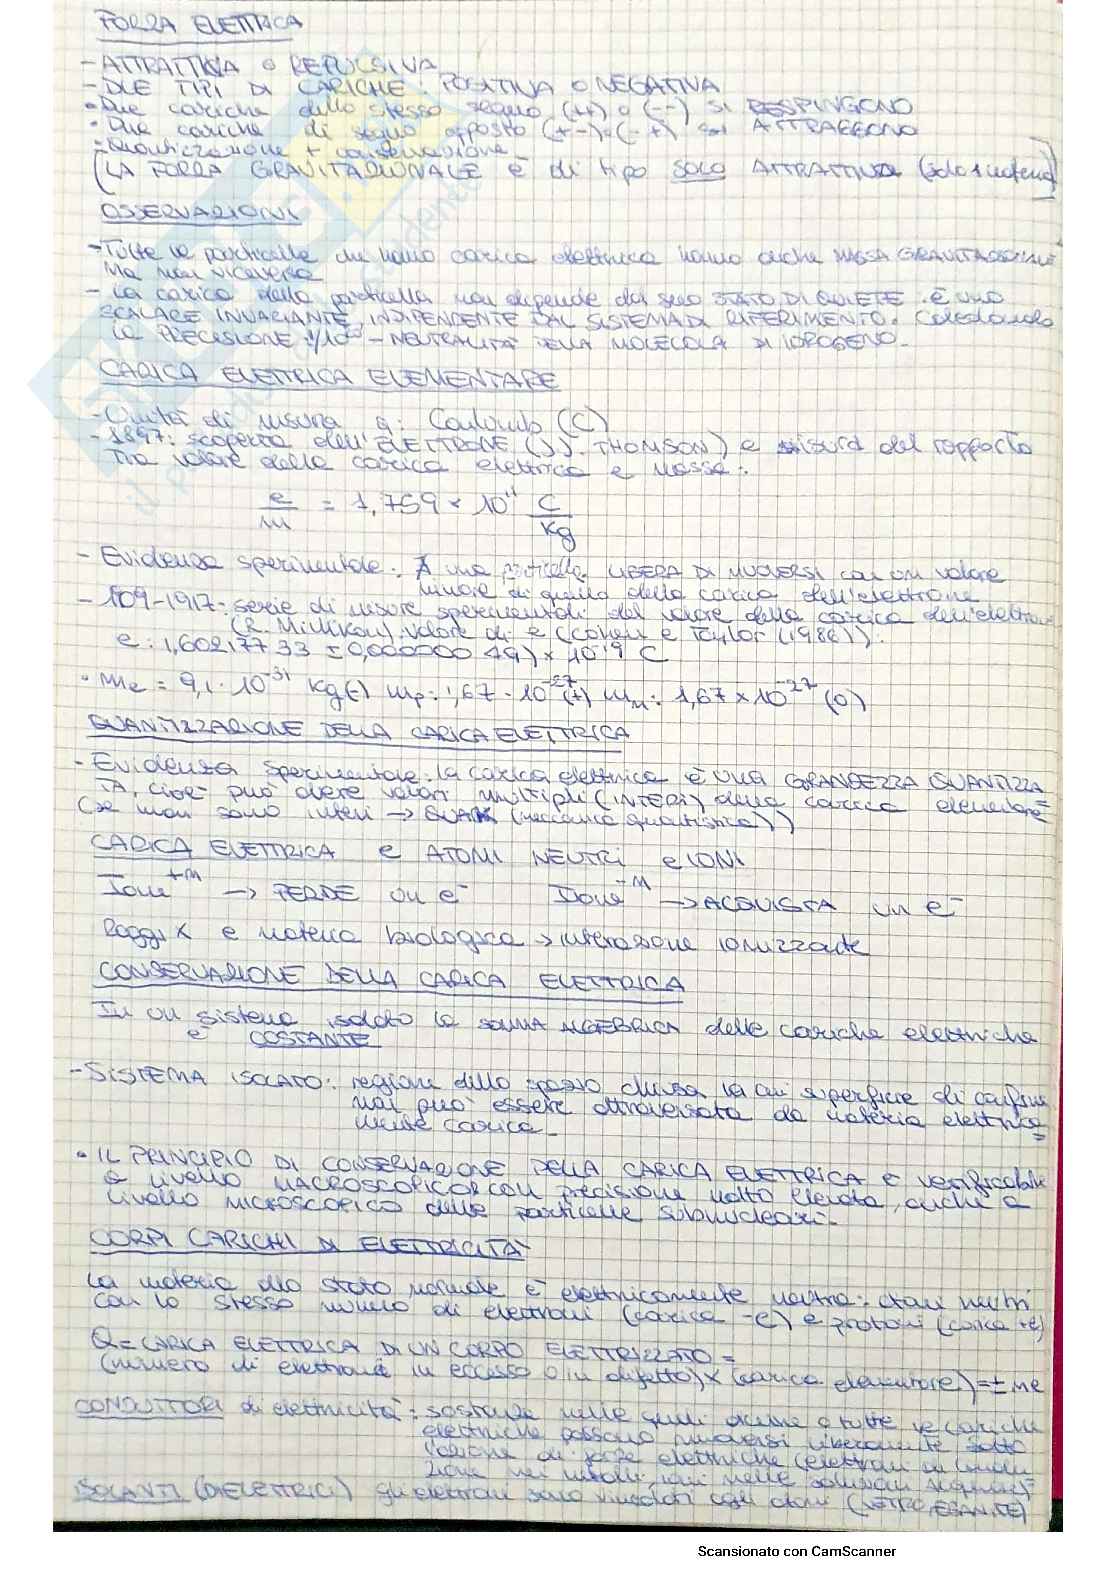 FORZA ELETTRICA
- ATTRATTIVA O REPULSIVA
- DUE TIPI DI CARICHE: POSITIVA O NEGATIVA
• Due cariche dello stesso segno (++) o (--) si RESPINGONO
• Due cariche di segno opposto (+-) o (-+) si ATTRAGGONO
- Quantizzazione + conservazione
(LA FORZA GRAVITAZIONALE è di tipo SOLO ATTRATTIVA (solo 1 materia)
OSSERVAZIONI
- Tutte le particelle che hanno carica elettrica hanno anche MASSA GRAVITAZIONALE
Ma non viceversa
- La carica della particella non dipende dal suo STATO DI QUIETE. È uno
SCALARE INVARIANTE INDIPENDENTE DAL SISTEMA DI RIFERIMENTO.
LA PRECISIONE - NEUTRALITÀ DELLA MOLECOLA DI IDROGENO.
CARICA ELETTRICA ELEMENTARE
- Unità di misura q: Coulomb (C)
- 1897: scoperta dell'ELETTRONE (J.J. THOMSON) e misura del rapporto
tra valore della carica elettrica e massa:
e/m = 1,759 × 10¹¹ C/Kg
- Evidenza sperimentale: una particella LIBERA DI MUOVERSI con un valore
minore di quello della carica dell'elettrone
- 109-1917: serie di misure sperimentali del valore della carica dell'elettrone
(R. Millikan). valore di e (Cohen e Taylor (1986)):
e: 1,60217733 ± 0,00000049) × 10⁻¹⁹ C
• me = 9,1 · 10⁻³¹ Kg (-) mp: 1,67 · 10⁻²⁷ (+) mn: 1,67 × 10⁻²⁷ (0)
QUANTIZZAZIONE DELLA CARICA ELETTRICA
- Evidenza sperimentale: la carica elettrica è una GRANDEZZA QUANTIZZA
TA, cioè può avere valori multipli (INTERI) della carica elementare
(se non sono interi → QUARK (meccanica quantistica))
CARICA ELETTRICA e ATOMI NEUTRI e IONI
Ione⁺ⁿ → PERDE un e⁻ Ione⁻ⁿ → ACQUISTA un e⁻
Raggi X e materia biologica → interazione ionizzante
CONSERVAZIONE DELLA CARICA ELETTRICA
In un sistema isolato la SOMMA ALGEBRICA delle cariche elettriche
è COSTANTE
- SISTEMA ISOLATO: regione dello spazio chiusa la cui superficie di confine
non può essere attraversata da materia elettrica=
mente carica.
• IL PRINCIPIO DI CONSERVAZIONE DELLA CARICA ELETTRICA È verificabile
a LIVELLO MACROSCOPICO con precisione molto elevata, anche a
LIVELLO MICROSCOPICO delle particelle subnucleari.
CORPI CARICHI DI ELETTRICITÀ
La materia allo stato normale è elettricamente neutra: atomi neutri
con lo stesso numero di elettroni (carica -e) e protoni (carica +e)
Q = CARICA ELETTRICA DI UN CORPO ELETTRIZZATO =
(numero di elettroni in eccesso o in difetto) × (carica elementare) = ± ne
CONDUTTORI di elettricità: sostanze nelle quali alcune o tutte le cariche
elettriche possono muoversi liberamente sotto
l'azione di forze elettriche (elettroni di condu
zione nei metalli, ioni nelle soluzioni acquose)
ISOLANTI (DIELETTRICI) gli elettroni sono vincolati agli atomi
Scansionato con CamScanner